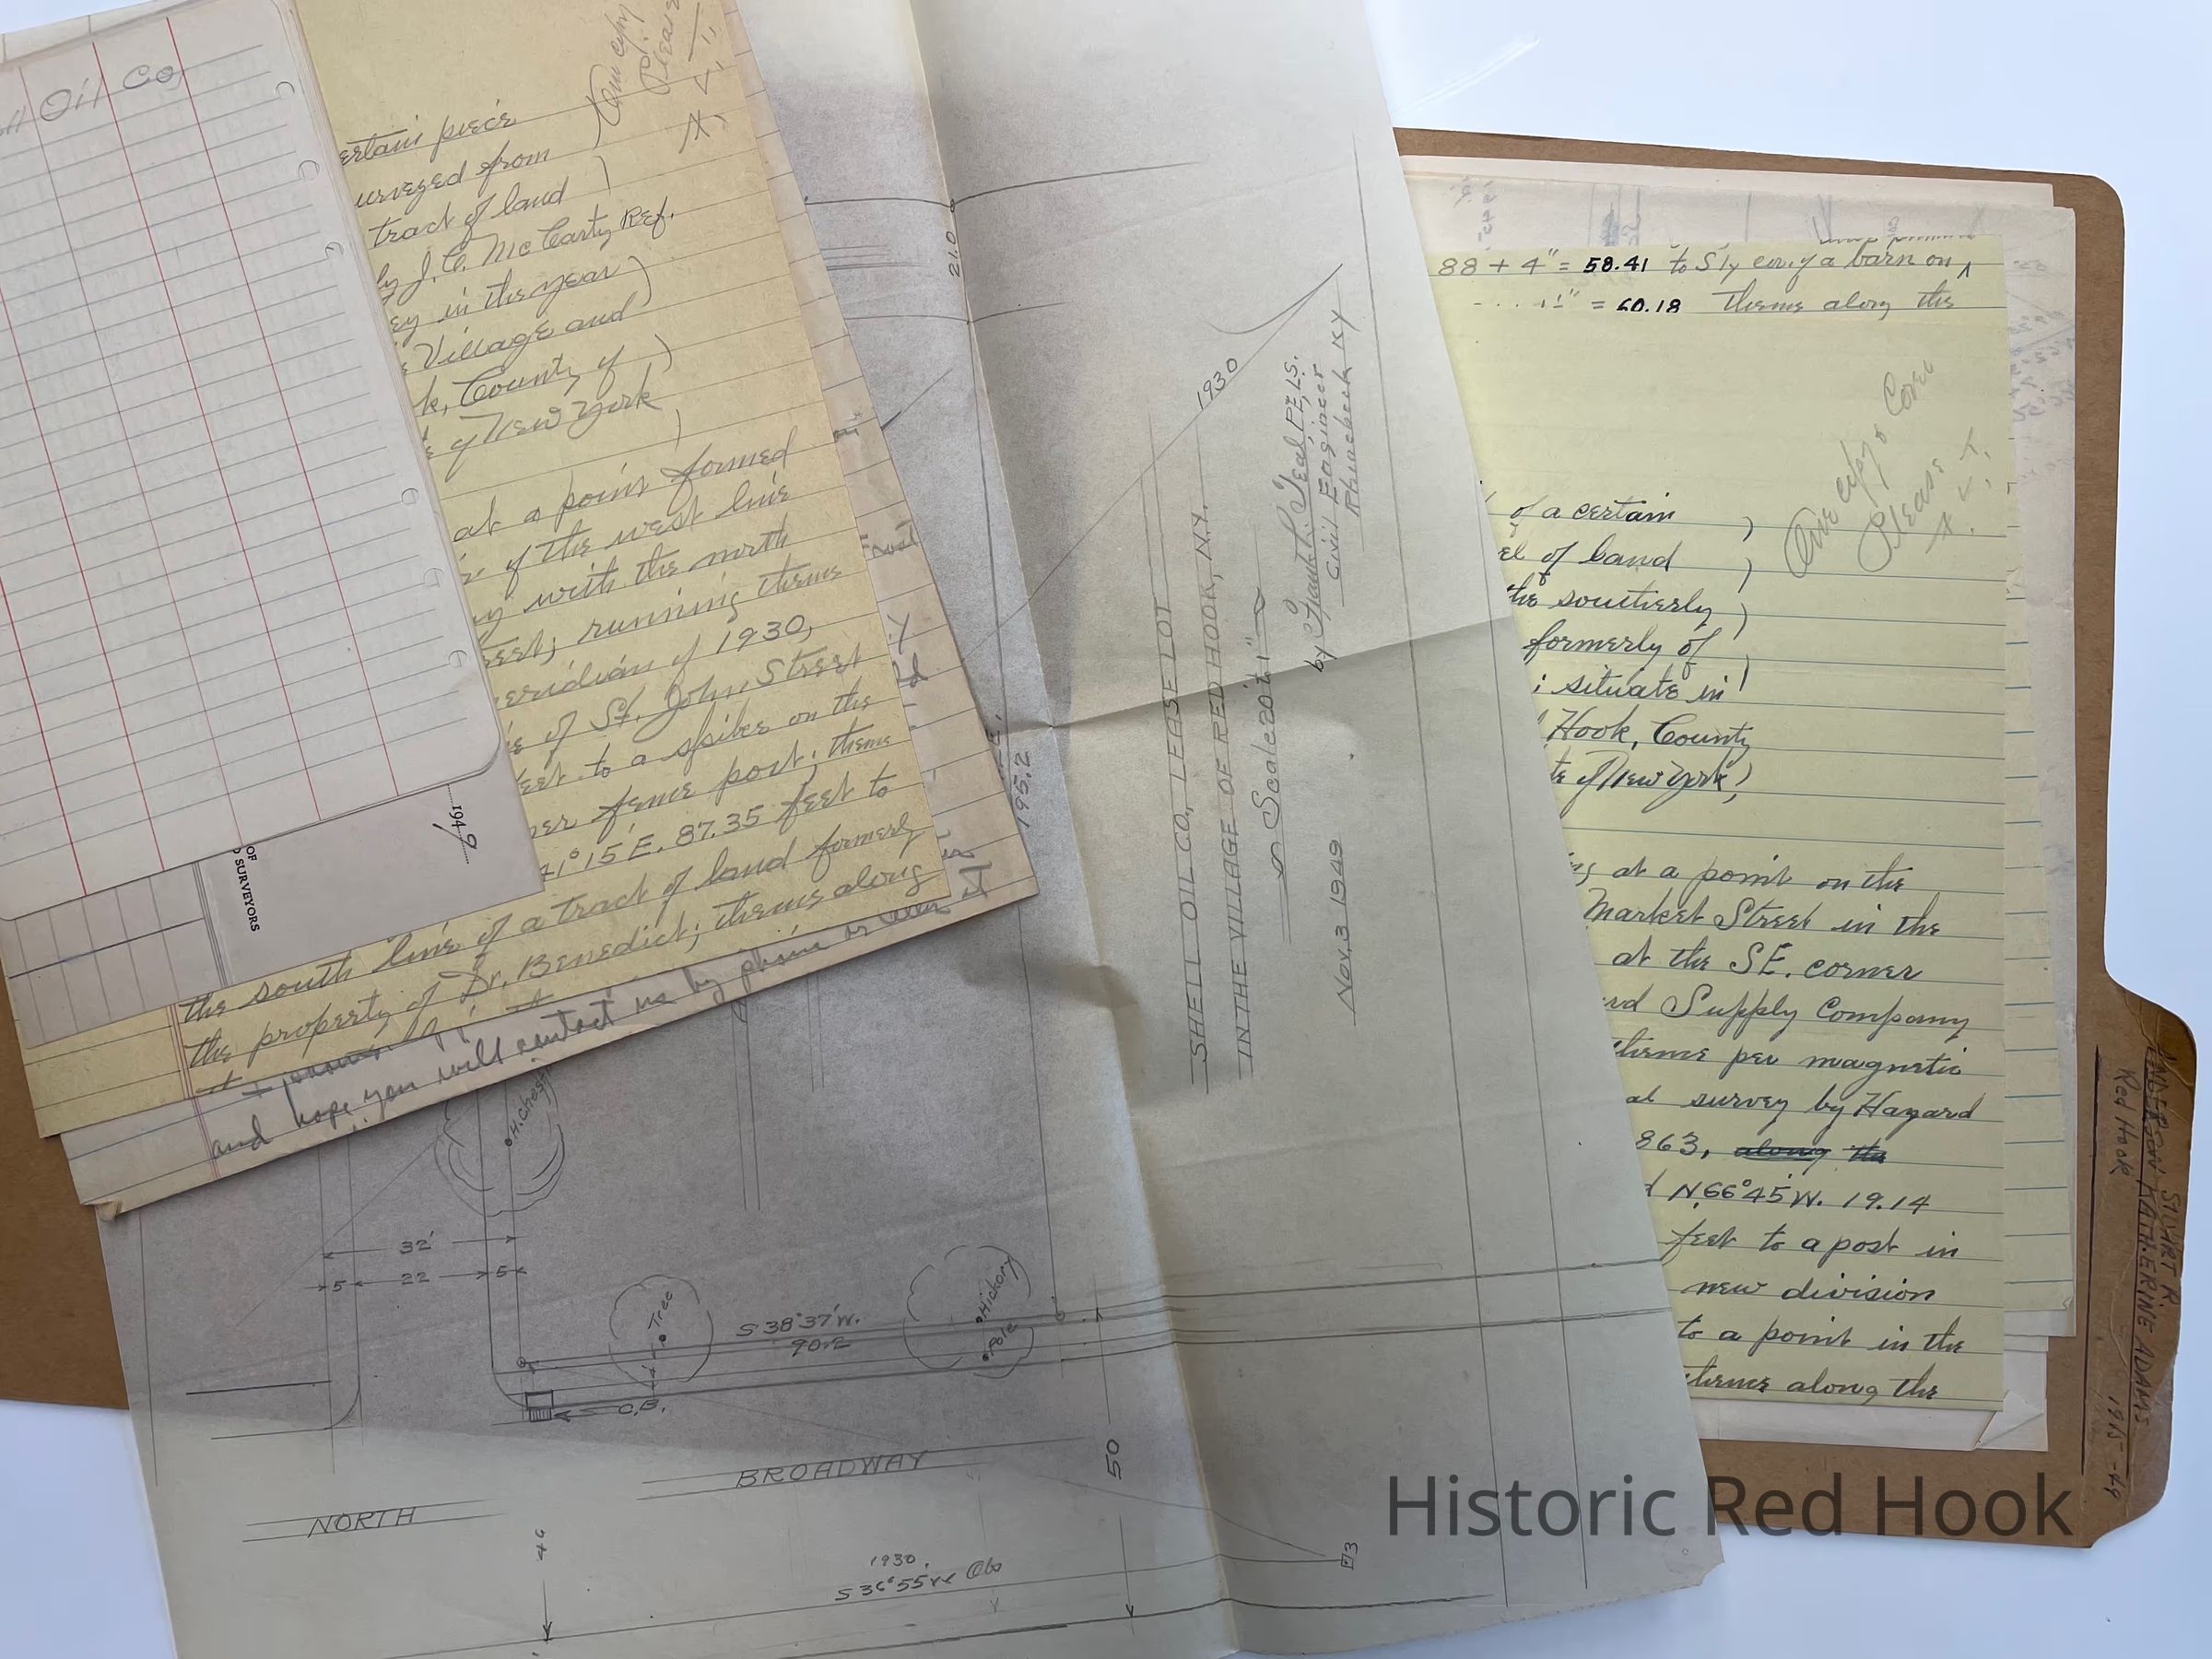 Oil Co,
One copy
Please
ertain piece
urveyed from
tract of land
by J. C. McCarty Ref.
ey in the year
Village and
k, County of
of New York
at a point formed
of the west line
with the north
reet; running thence
eridian of 1930,
of St. John Street
eet to a spike on the
ner fence post; thence
41°15'E. 87.35 feet to
the south line of a tract of land formerly
the property of Dr. Benedict; thence along
and hope you will contact us by phone or letter
1949
OF
SURVEYORS
21.0
1930
195.2
SHELL OIL CO, LEASE LOT
IN THE VILLAGE OF RED HOOK, N.Y.
Scale 20 to 1"
by Frank L. Teal, P.E., L.S.
Civil Engineer
Rhinebeck NY
Nov. 3 1949
H. Chest
32'
5 22 5
Tree
S 38°37'W.
90.2
Hickory
Pole
C.B.
NORTH
BROADWAY
50
46
1930
S 36°55'W
88 + 4" = 58.41 to Sly cor. of a barn on
= 60.18 thence along the
One copy
Please
of a certain
el of land
the southerly
formerly of
; situate in
Hook, County
te of New York
at a point on the
Market Street in the
at the SE. corner
Supply Company
thence per magnetic
survey by Hazard
863, along the
N.66°45'W. 19.14
feet to a post in
new division
to a point in the
thence along the
STUART R.
ANDERSON, KATHERINE ADAMS
Red Hook
Historic Red Hook